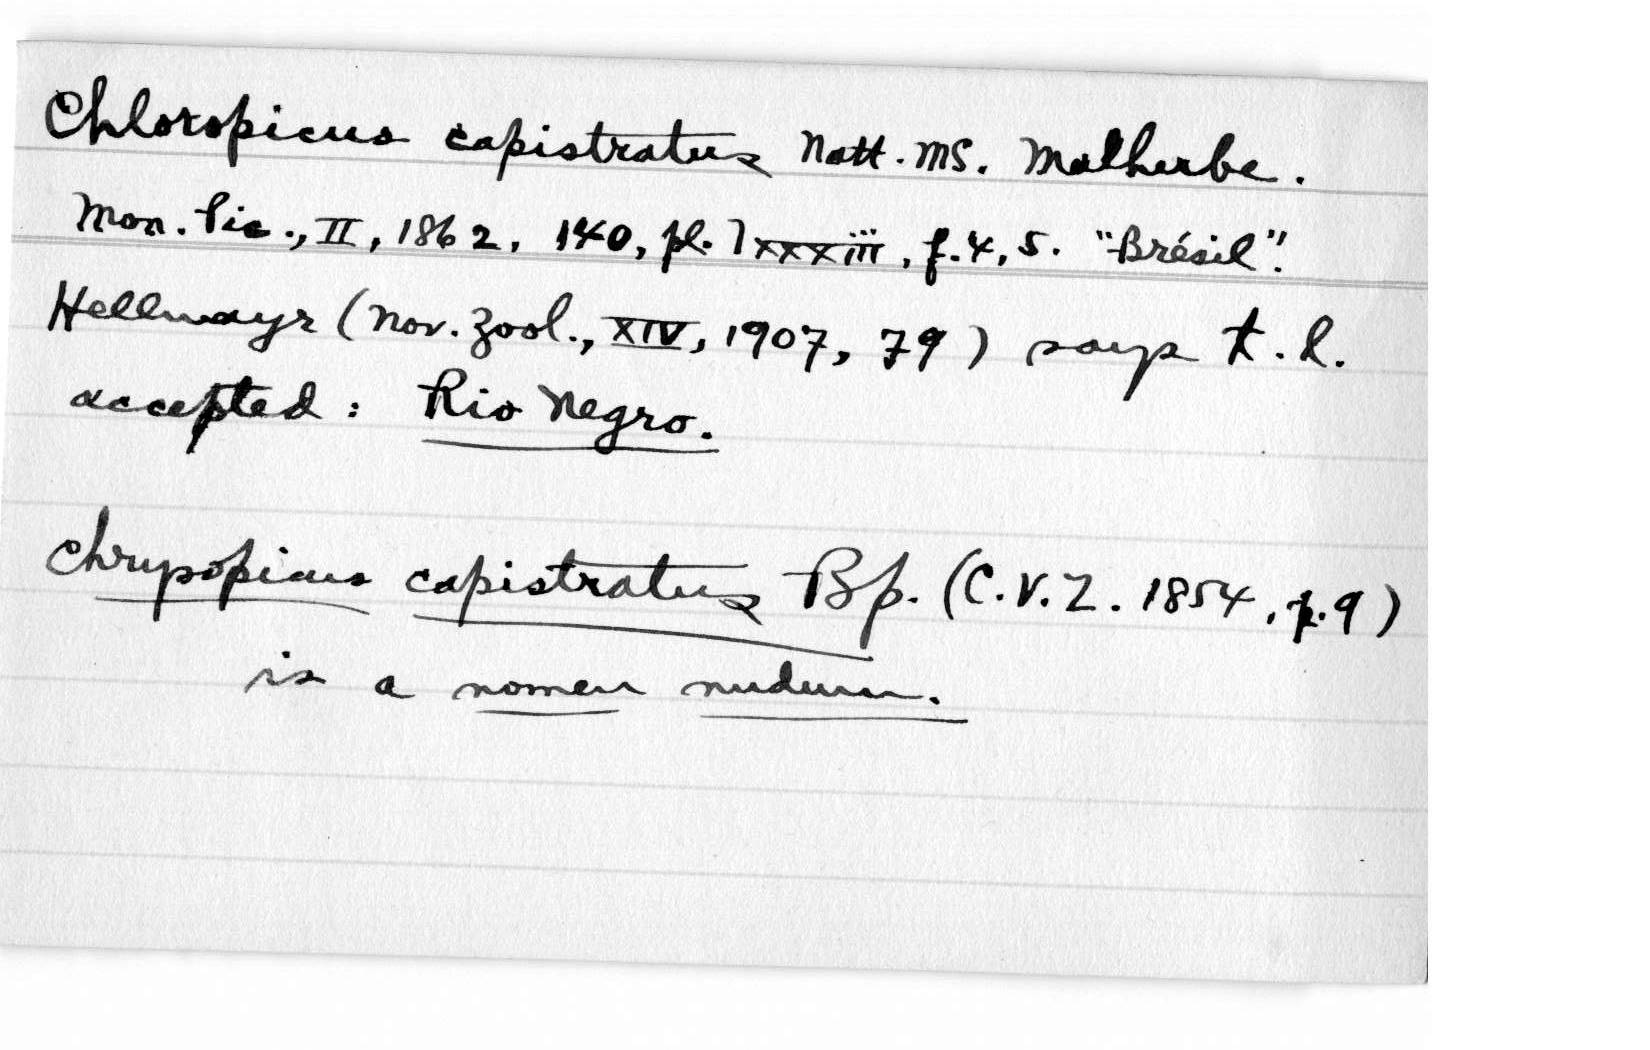 Chloropicus capistratus Natt. MS. Malherbe.
Mon. Pic., II, 1862, 140, pl. lxxxiii, f. 4, 5. "Brésil".
Hellmayr (Nov. Zool., XIV, 1907, 79) says t. l.
accepted : Rio Negro.
Chrysopicus capistratus Bp. (C.V.Z. 1854, p. 9)
is a nomen nudum.